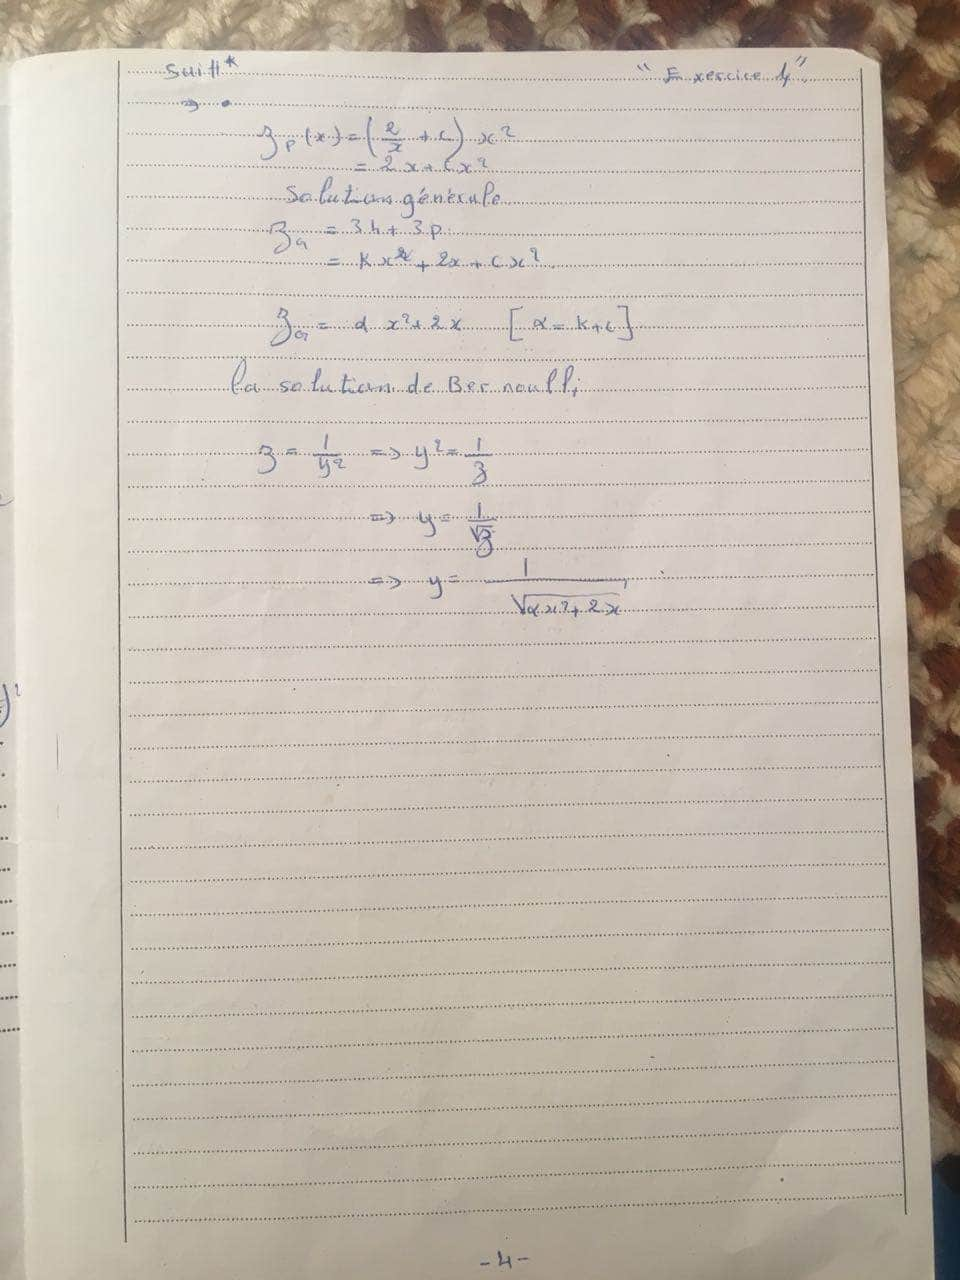 Suite* "Exercice 4".
→ •
z_p(x) = (2/x + c) x²
= 2x + cx²
Solution générale
z_G = z_h + z_p
= Kx² + 2x + cx²
z_G = α x² + 2x [α = K+c]
la solution de Bernoulli
z = 1/y² => y² = 1/z
=> y = 1/√z
=> y = 1/√(αx² + 2x)
-4-